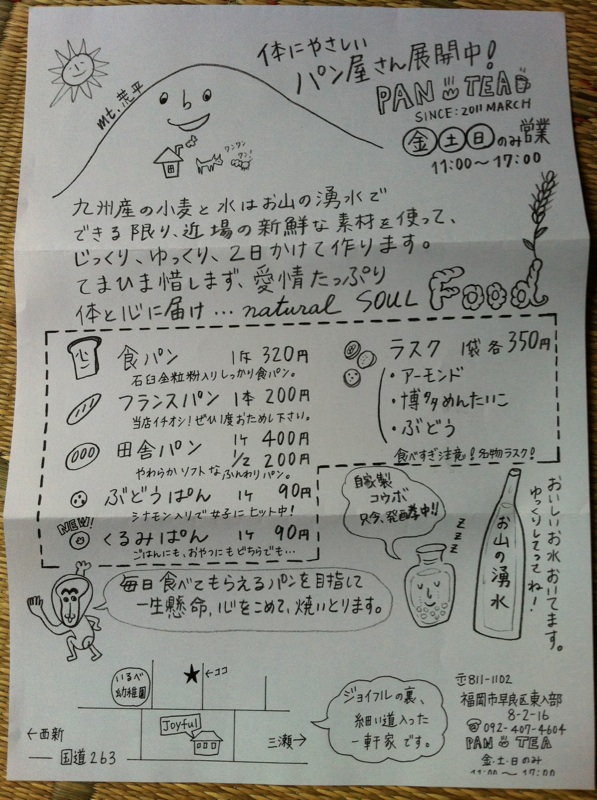 体にやさしい
パン屋さん展開中!
PAN TEA
SINCE: 2011 MARCH
金土日のみ営業
11:00〜17:00
mt.荒平
ワンワン
ワン!
九州産の小麦と水はお山の湧水で
できる限り、近場の新鮮な素材を使って、
じっくり、ゆっくり、2日かけて作ります。
てまひま惜しまず、愛情たっぷり
体と心に届け…natural SOUL Food
食パン 1斤 320円
石臼全粒粉入りしっかり食パン。
フランスパン 1本 200円
当店イチオシ!ぜひ1度おためし下さい。
田舎パン 1ケ 400円
1/2 200円
やわらかソフトなふんわりパン。
ぶどうぱん 1ケ 90円
シナモン入りで女子にヒット中!
NEW!
くるみぱん 1ケ 90円
ごはんにも、おやつにもどちらでも…
ラスク 1袋 各350円
・アーモンド
・博多めんたいこ
・ぶどう
食べすぎ注意!名物ラスク!
自家製
コウボ
只今、発酵中!!
z z z
お山の湧水
おいしいお水おいてます。
ゆっくりしてってね!
毎日食べてもらえるパンを目指して
一生懸命、心をこめて、焼いとります。
いるべ
幼稚園
★←ココ
Joyful
←西新
三瀬→
国道263
ジョイフルの裏、
細い道入った
一軒家です。
〒811-1102
福岡市早良区東入部
8-2-16
☎092-407-4604
PAN TEA
金・土・日のみ
11:00〜17:00